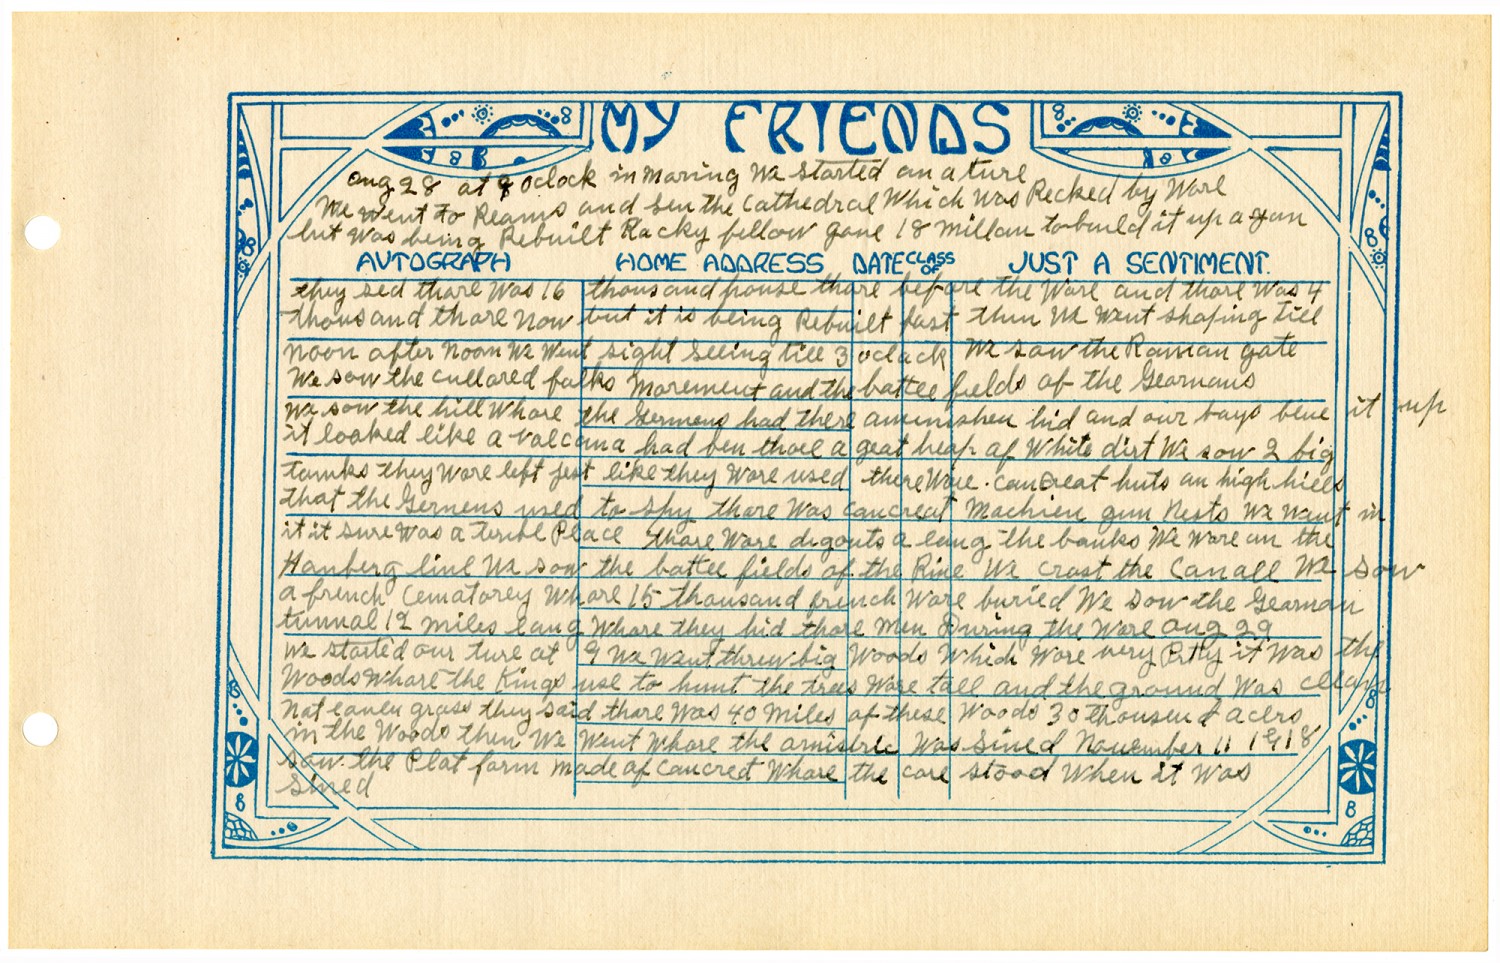 MY FRIENDS
Aug 28 at 9 oclock in moring We started on a ture
We went to Reams and sen the Cathedral Which was Recked by Ware
but was being Rebuilt Racky fellow gave 18 millon to build it up a gan
AUTOGRAPH HOME ADDRESS DATE CLASS OF JUST A SENTIMENT.
they sed thare Was 16 thousand house thare before the Ware and thare Was 4
thousand thare Now but it is being Rebuilt fast then We Went shoping till
Noon after Noon We Went sight seeing till 3 oclock We saw the Roman gate
We saw the cullared folks Morement and the battle fields of the Gearmans
We saw the hill Whare the Germens had there amunishen hid and our boys blue it up
it looked like a volcana had ben thare a geat heap of White dirt We saw 2 big
tanks they Ware left jest like they Ware used there Ware concreat huts on high hills
that the Germens used to spy thare Was concreat Machien gun Nests We Want in
it it sure Was a terible Place thare Ware digouts a long the banks We Ware on the
Hanberg line We saw the battle fields of the Rine We crost the Canall We saw
a french Cematorey Whare 15 thousand french Ware buried We saw the Gearman
tunnal 12 miles long Whare they hid thare Men During the Ware Aug 29
We started our ture at 9 We Want threw big Woods Which Ware very Prty it Was the
Woods Whare the Kings use to hunt the trees Ware tall and the ground Was clean
Not eaven grass they said thare Was 40 Miles of these Woods 30 thousend acers
in the Woods then We Went Whare the amistric Was Sined November 11 1918
saw the Plat form made of concret Whare the care stood When it Was
Sined